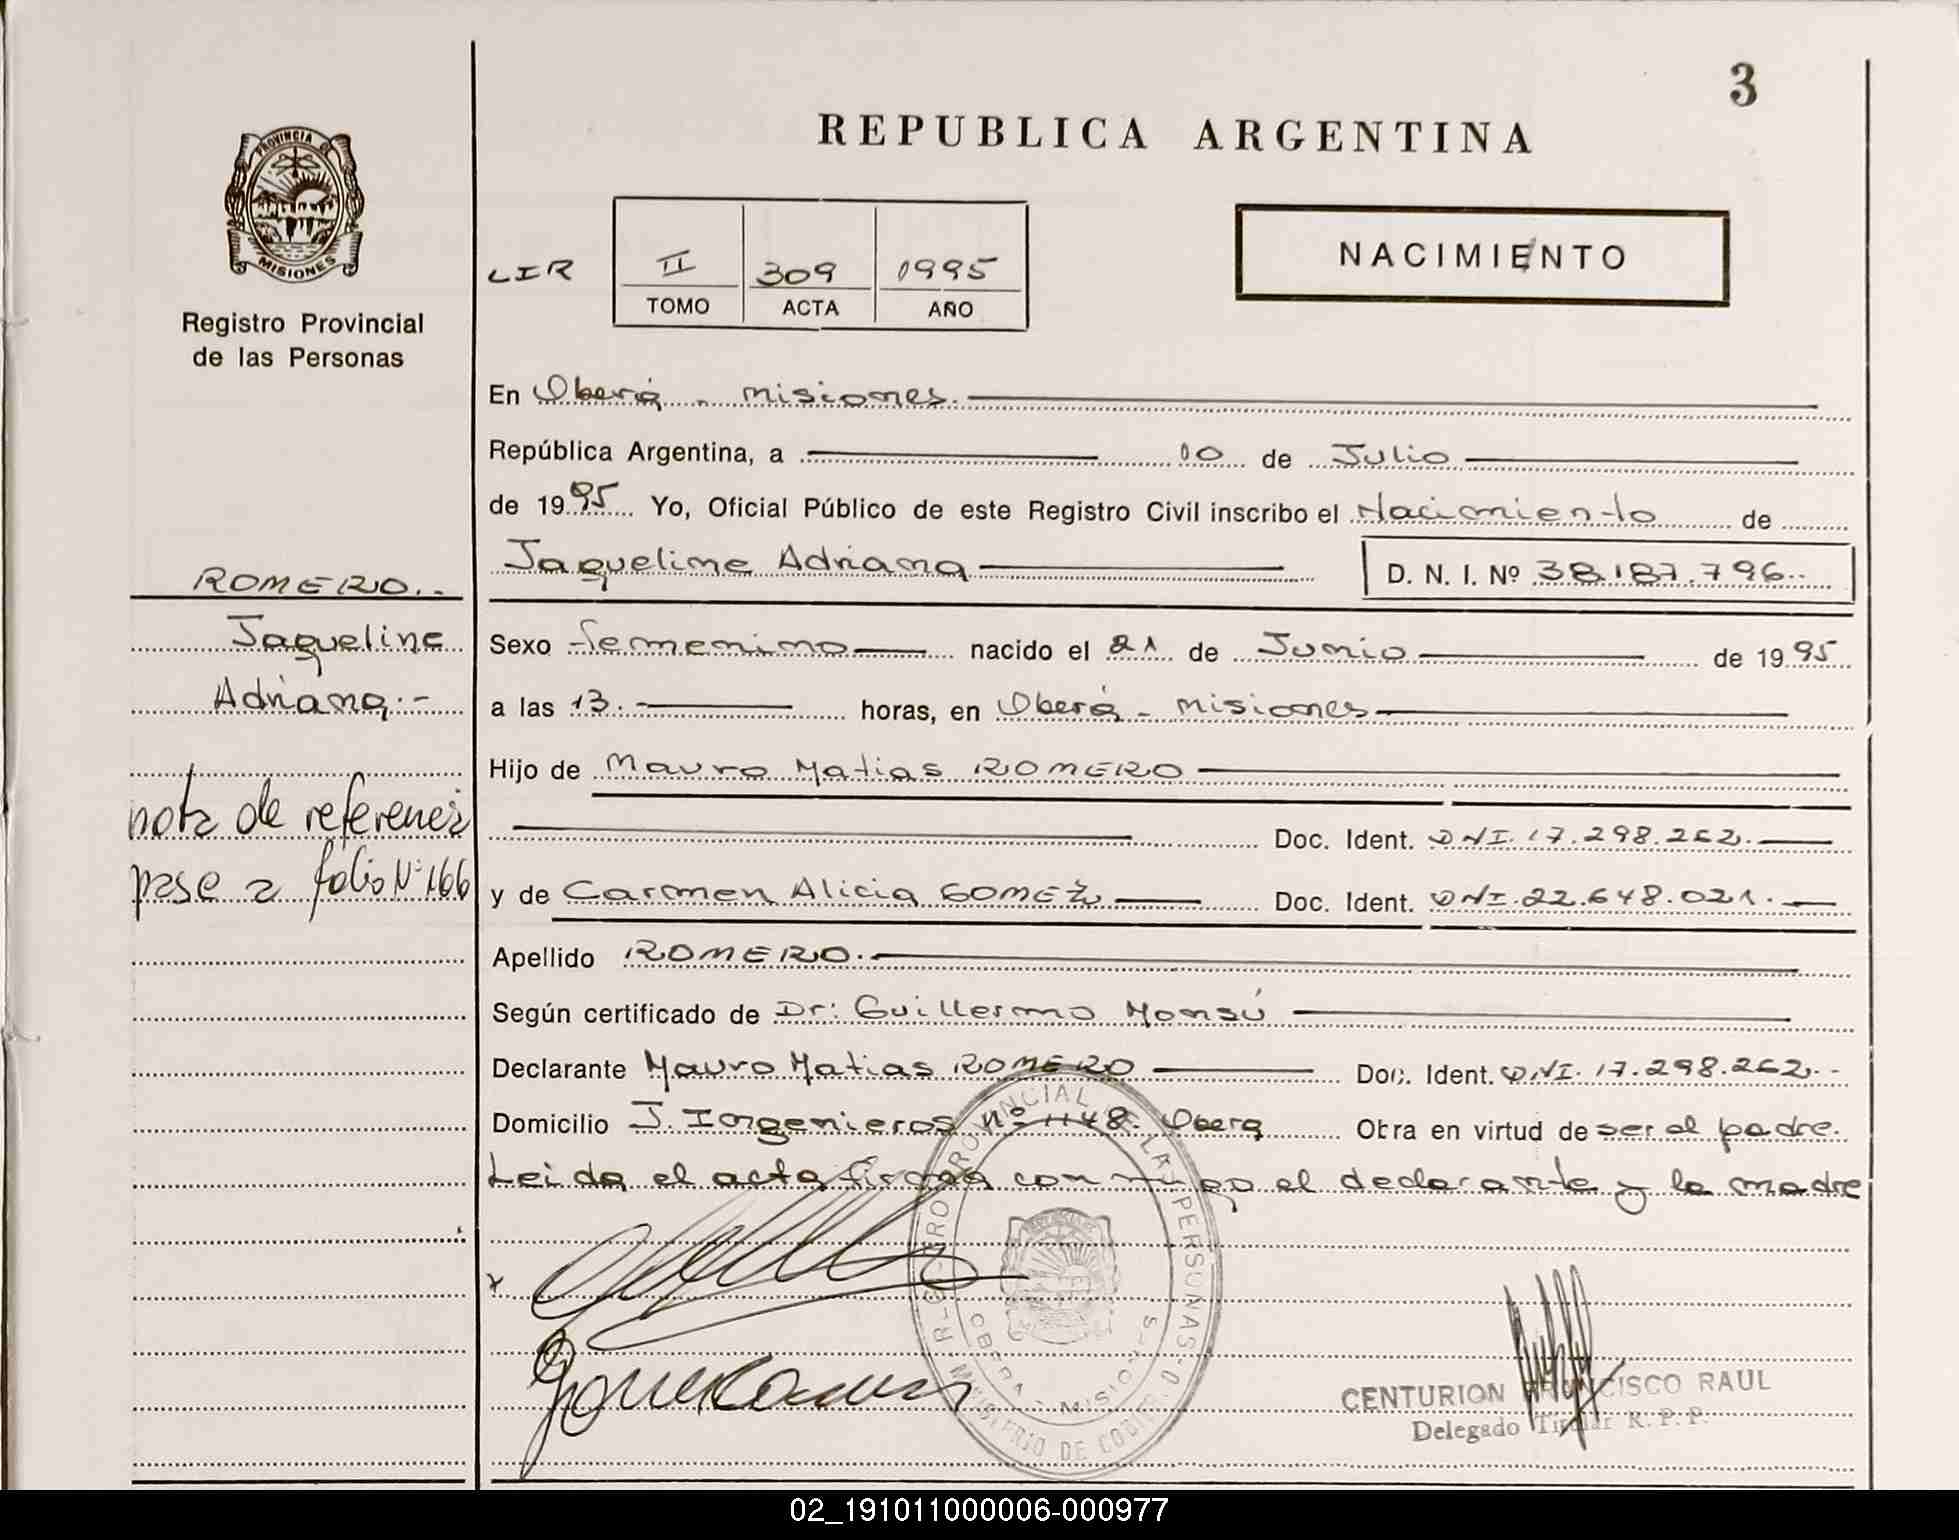 3
REPUBLICA ARGENTINA
PROVINCIA DE
MISIONES
Registro Provincial
de las Personas
LIR II 309 1995
TOMO ACTA AÑO
NACIMIENTO
En Oberá - Misiones.
República Argentina, a 10 de Julio
de 1995 Yo, Oficial Público de este Registro Civil inscribo el Nacimiento de
Jaqueline Adriana D. N. I. Nº 38.187.796.
ROMERO..
Jaqueline
Adriana.-
nota de referencia
pase a folio Nº 166
Sexo femenino nacido el 21 de Junio de 1995
a las 13. horas, en Oberá - Misiones
Hijo de Mauro Matias ROMERO
Doc. Ident. DNI. 17.298.262.
y de Carmen Alicia GOMEZ Doc. Ident. DNI. 22.648.021.
Apellido ROMERO.
Según certificado de Dr: Guillermo Monsú
Declarante Mauro Matias ROMERO Doc. Ident. DNI. 17.298.262.-
Domicilio J. Ingenieros nº 1148. Obera Obra en virtud de ser el padre.
Leida el acta firma con migo el declarante y la madre
PROVINCIAL LAS PERSONAS
MINISTERIO DE GOBIER
OBERA - MISIONES
CENTURION FRANCISCO RAUL
Delegado Titular R. P. P.
02_191011000006-000977